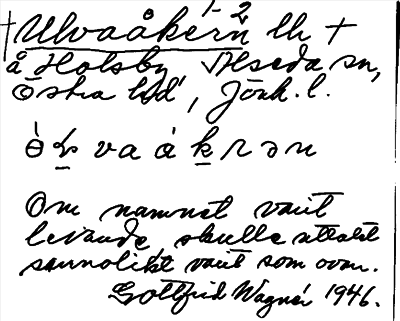 †Ulvaåkern 1-2 lh †
å Holsby Alseda sn,
Östra hd, Jönk. l.
va å k
Om namnet varit
levande, skulle uttalet
sannolikt varit som ovan.
Gottfrid Wagnér 1946.